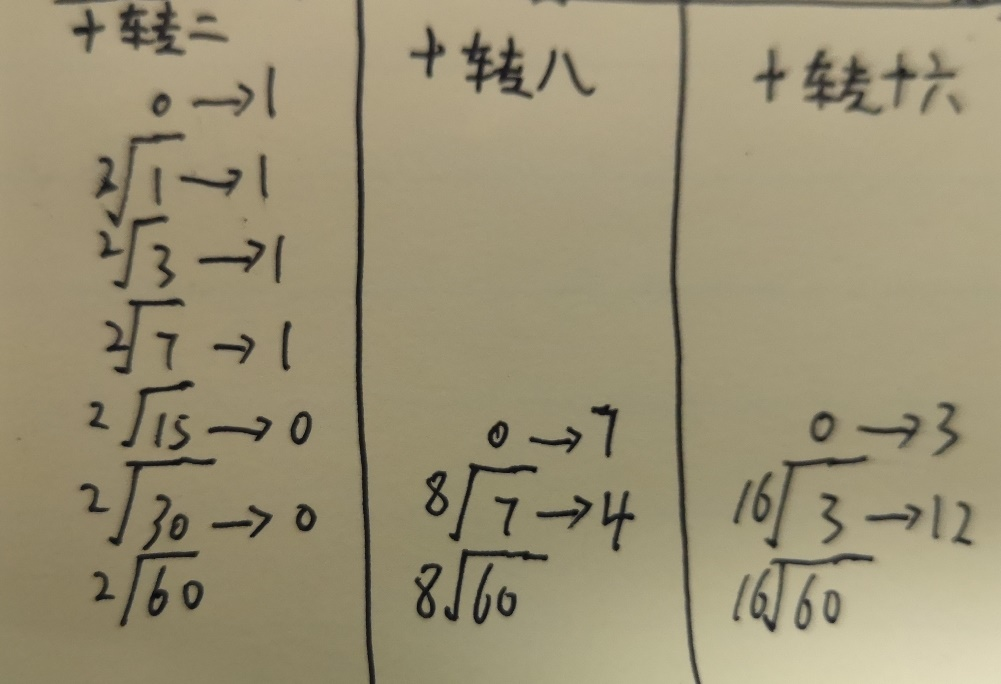 十转二
0 →1
2√1 →1
2√3 →1
2√7 →1
2√15 →0
2√30 →0
2√60
十转八
0 →7
8√7 →4
8√60
十转十六
0 →3
16√3 →12
16√60